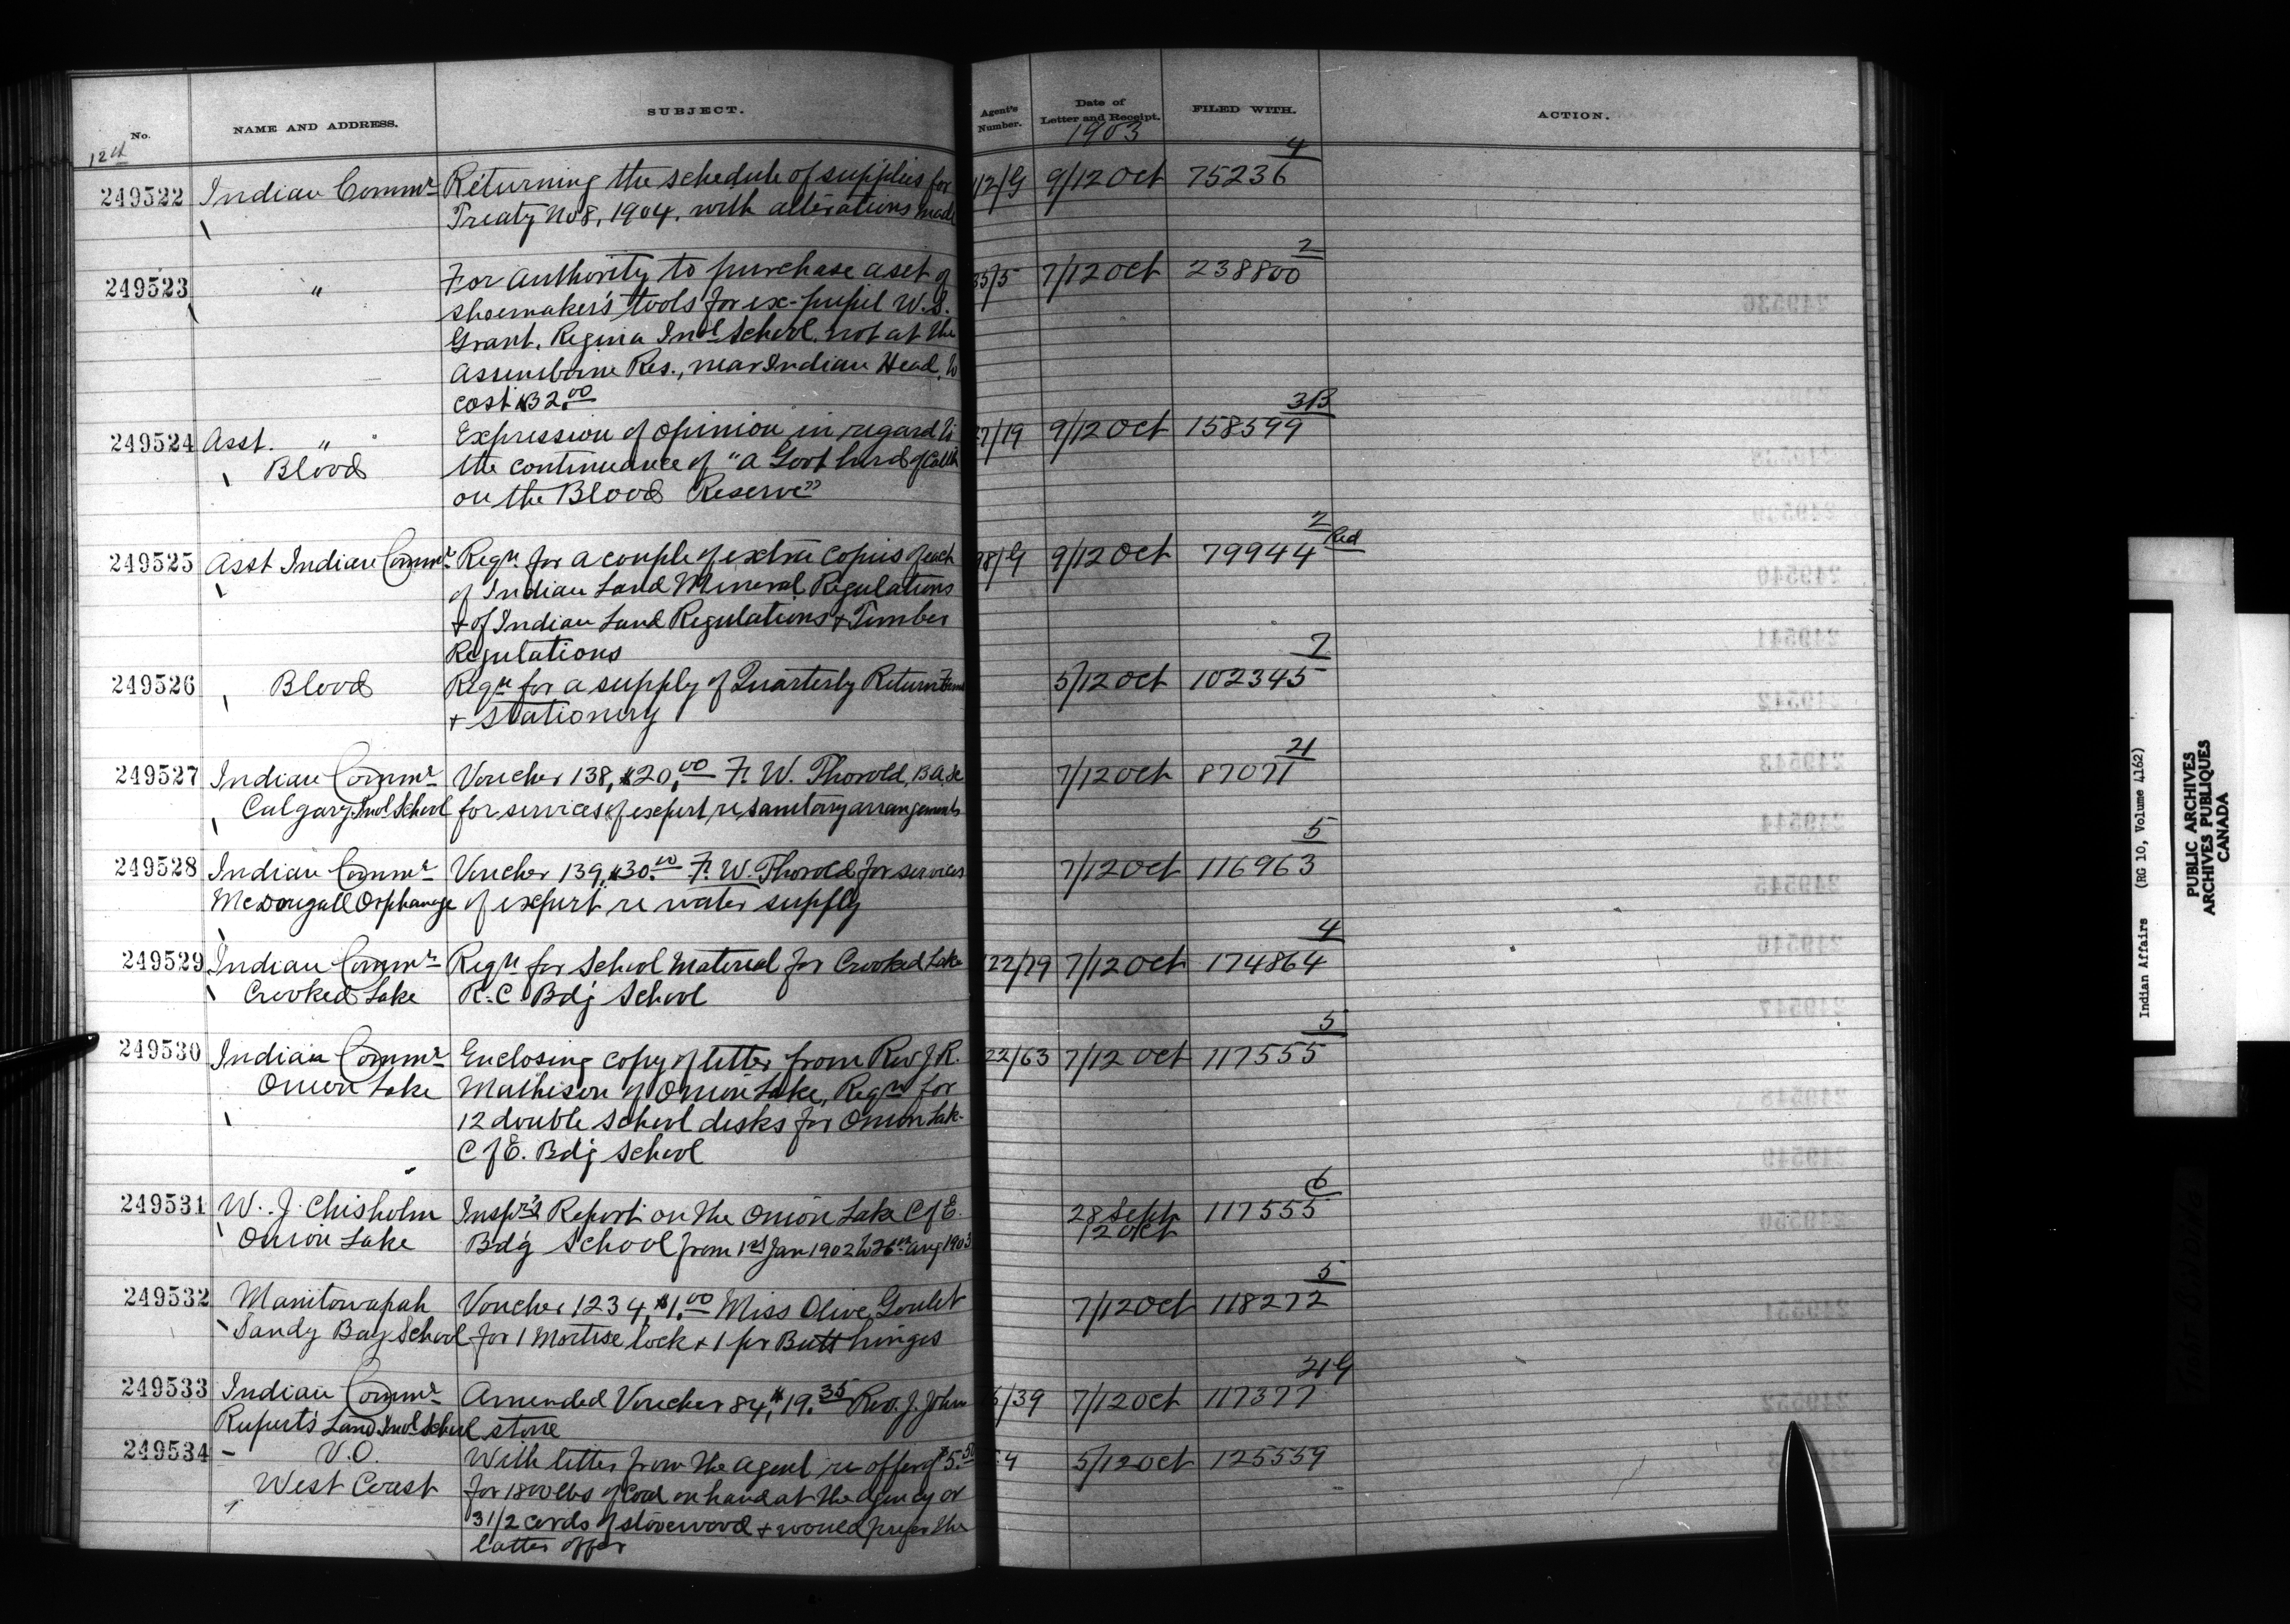 No.
NAME AND ADDRESS.
SUBJECT.
Agent's Number.
Date of Letter and Receipt.
FILED WITH.
ACTION.
12th
1903
249522 Indian Commr Returning the schedule of supplies for 12/G 9/12 Oct 75236 4
Treaty No 8, 1904. with alterations made
249523 " For authority to purchase a set of 35/5 7/12 Oct 238800 2
shoemaker's tools for ex-pupil W. S.
Grant. Regina Indl School. not at the
Assiniboine Res., near Indian Head.
cost $32.00
249524 Asst. " Expression of opinion in regard to 27/19 9/12 Oct 158599 3B
Blood the continuance of "a Govt herd of Cattle
on the Blood Reserve"
249525 Asst Indian Commr Reqn for a couple of extra copies of each 98/G 9/12 Oct 79944 2 Red
of Indian Land Mineral Regulations
& of Indian Land Regulations & Timber
Regulations
249526 Blood Reqn for a supply of Quarterly Return Forms 5/12 Oct 102345 7
& Stationery
249527 Indian Commr Voucher 138, $20.00 F. W. Thorold, B.A.Sc 7/12 Oct 87071 21
Calgary Indl School for services of expert re sanitary arrangements
249528 Indian Commr Voucher 139, $30.00 F. W. Thorold for services 7/12 Oct 116963 5
McDougall Orphanage of expert re water supply
249529 Indian Commr Reqn for School Material for Crooked Lake 22/79 7/12 Oct 174864 4
Crooked Lake R.C. Bdg School
249530 Indian Commr Enclosing copy of letter from Rev J. R. 22/63 7/12 Oct 117555 5
Onion Lake Matheson of Onion Lake, Reqn for
12 double school desks for Onion Lake
C of E. Bdg School
249531 W. J. Chisholm Inspr's Report on the Onion Lake C of E. 28 Sept 117555 6
Onion Lake Bdg School from 1st Jan 1902 to 26th Aug 1903 12 Oct
249532 Manitowapah Voucher 1234, $1.00 Miss Olive Goulet 7/12 Oct 118272 5
Sandy Bay School for 1 Mortise lock & 1 pr Butt hinges
249533 Indian Commr Amended Voucher 84, $19.35 Rev. J. John 5/39 7/12 Oct 117377 21G
Rupert's Land Indl School stone
249534 V.O. With letter from the agent re offer of $5.50 5/12 Oct 125559
West Coast for 1800 lbs of Coal on hand at the agency or
3 1/2 cords of stovewood & would prefer the
latter offer
Indian Affairs (RG 10, Volume 4162)
PUBLIC ARCHIVES
ARCHIVES PUBLIQUES
CANADA